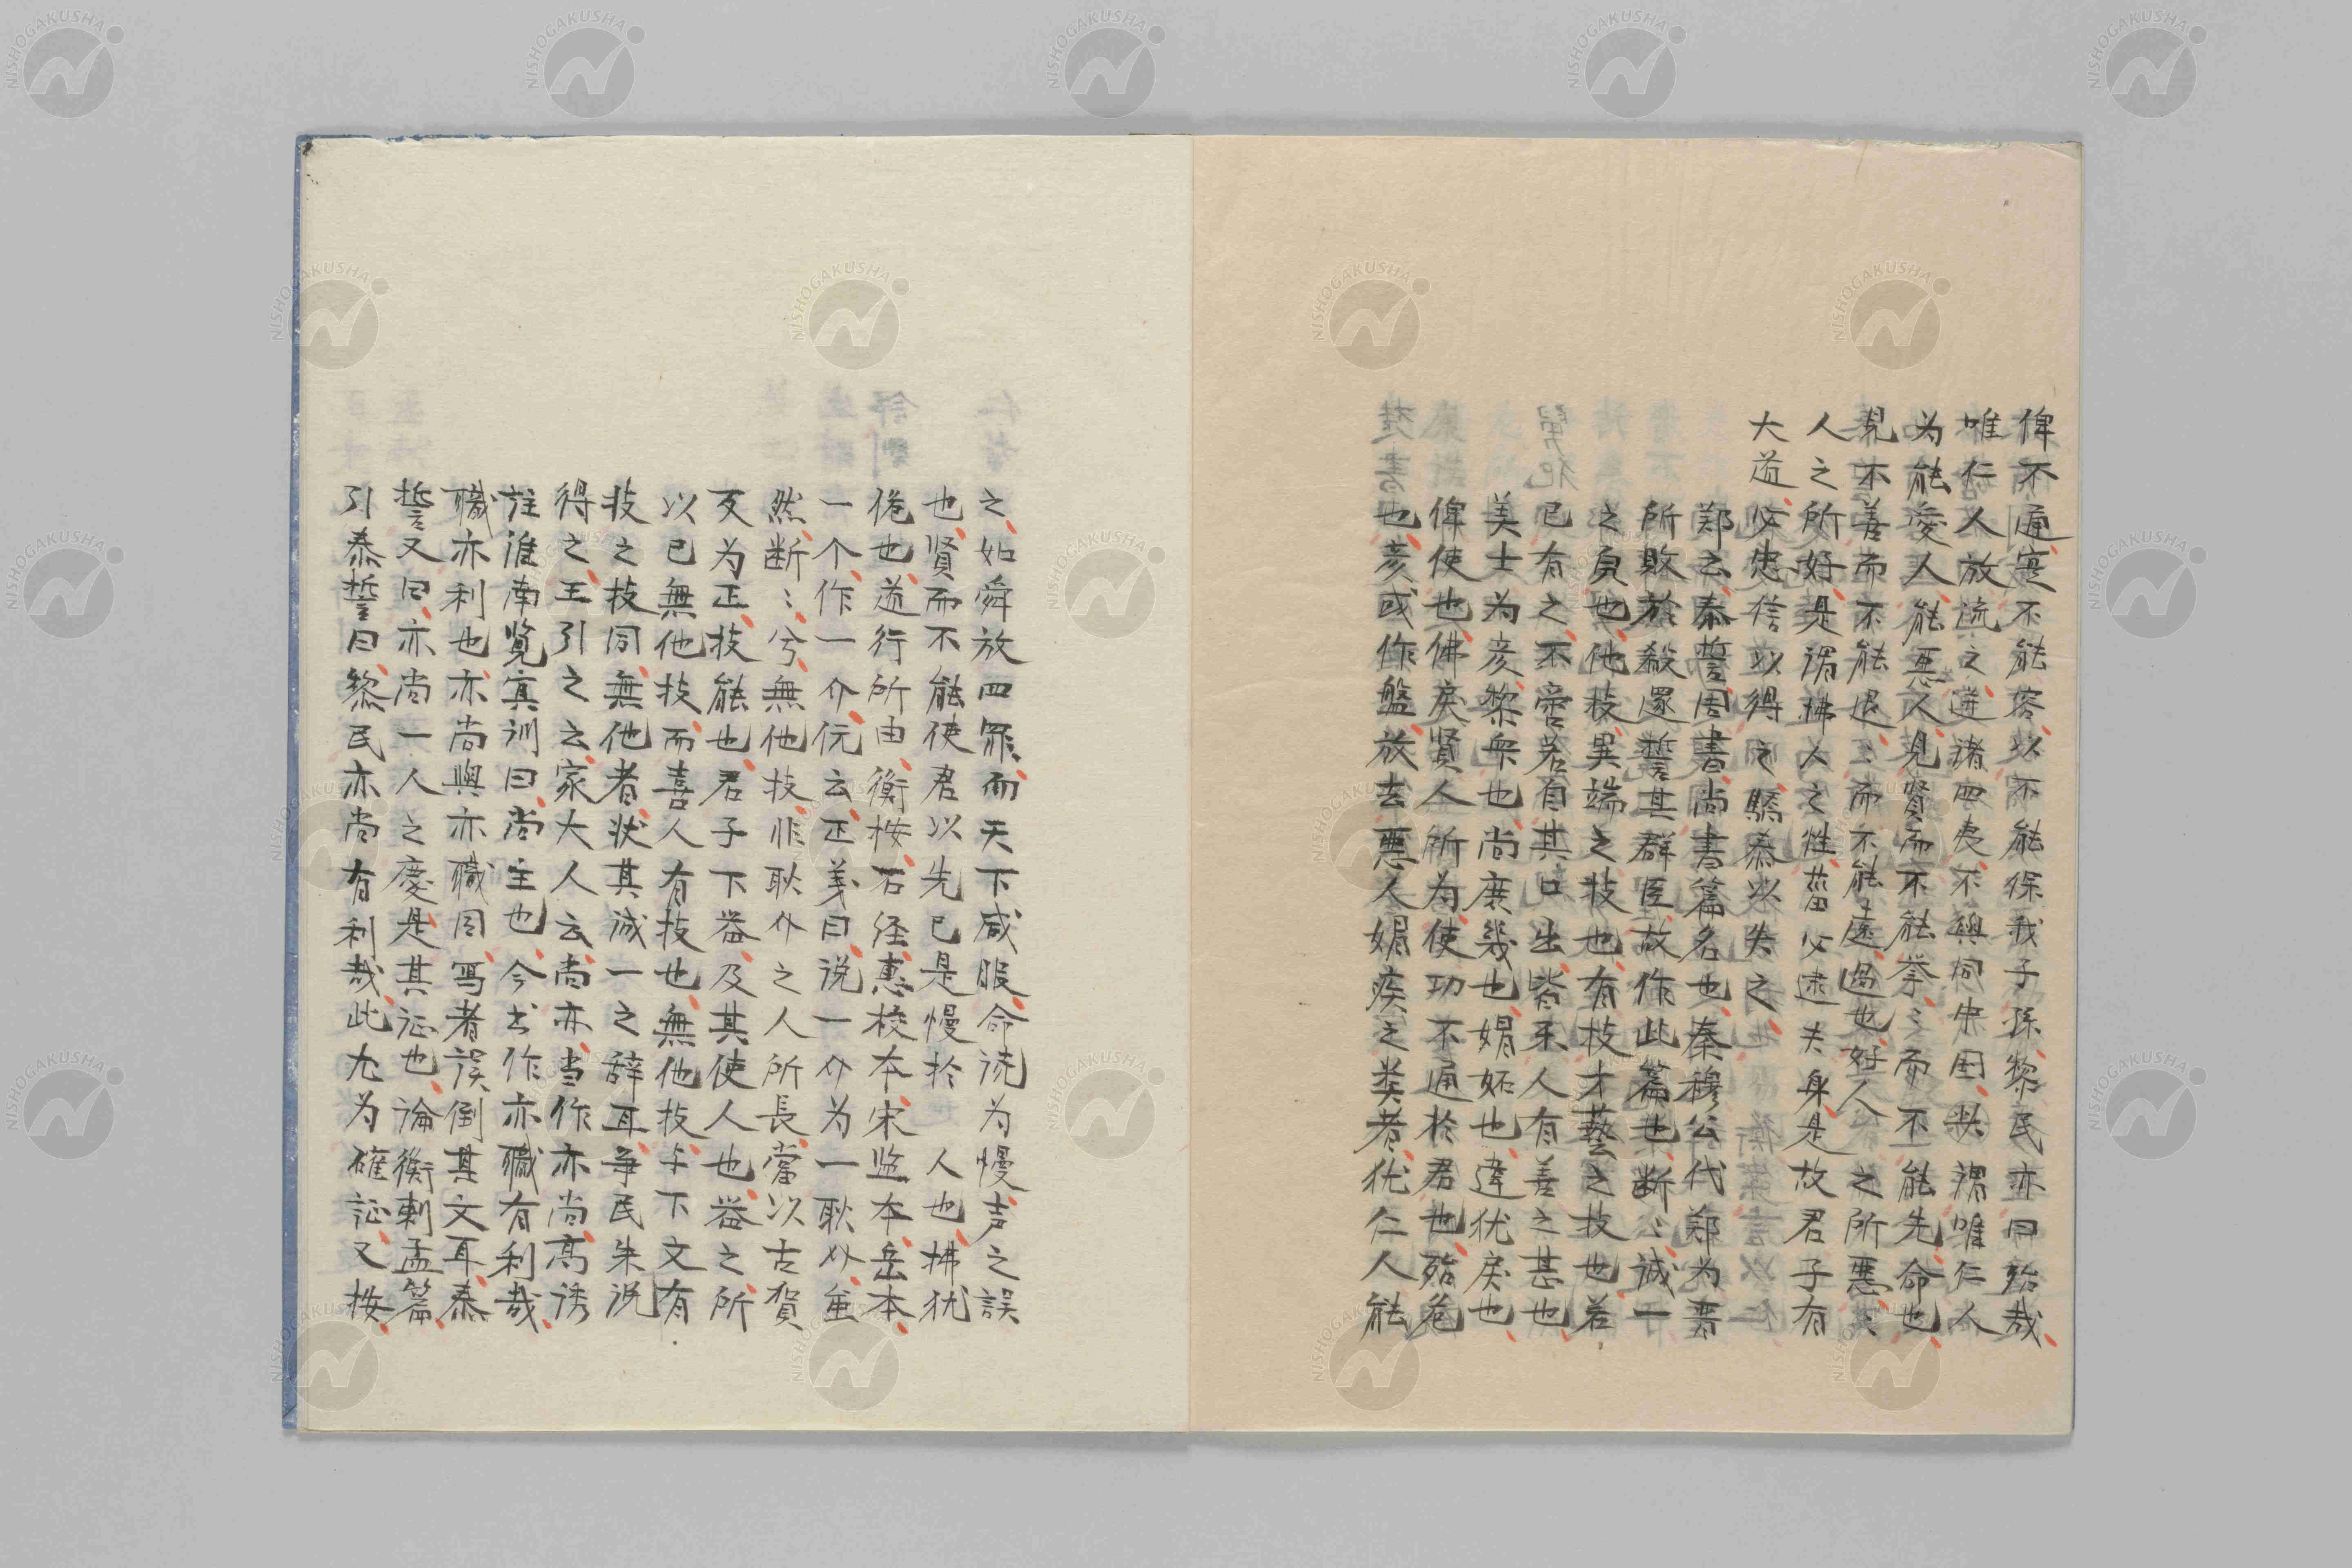 俾不通寔不能容以不能保我子孫黎民亦曰殆哉
唯仁人放流之迸諸四夷不與同中国此謂唯仁人
为能愛人能悪人見賢而不能挙〻而不能先命也
見不善而不能退〻而不能遠過也好人之所悪〻
人之所好是謂拂人之性菑必逮夫身是故君子有
大道必忠信以得之驕泰以失之
郑云秦誓周書尚書篇名也秦穆公代郑为晋
所敗於殽還誓其群臣故作此篇也断〻誠一
之皃也他技異端之技也有技才藝之技也若
己有之不啻若自其口出皆楽人有善之甚也
美士为彦黎衆也尚庶幾也媢妬也違犹戾也
俾使也佛戾賢人所为使功不通於君也殆危
也彦或作盤放去悪人媢疾之类者犹仁人能
之如舜放四罪而天下咸服命読为慢声之誤
也賢而不能使君以先己是慢於人也拂犹
佹也道行所由衡按石经惠校本宋监本岳本
一个作一介阮云正義曰说一介为一耿介虽
然断〻兮無他技非耿介之人所長當以古賀
文为正技能也君子下益及其使人也益之所
以已無他技而喜人有技也無他技与下文有
技之技同無他者状其诚一之辞耳争民朱说
得之王引之云家大人云尚亦当作亦尚高诱
註淮南览冥训曰尚主也今书作亦職有利哉
職亦利也亦尚與亦職同写者误倒其文耳秦
誓又曰亦尚一人之慶是其证也論衡刺孟篇
引秦誓曰黎民亦尚有利哉此尤为確証又按